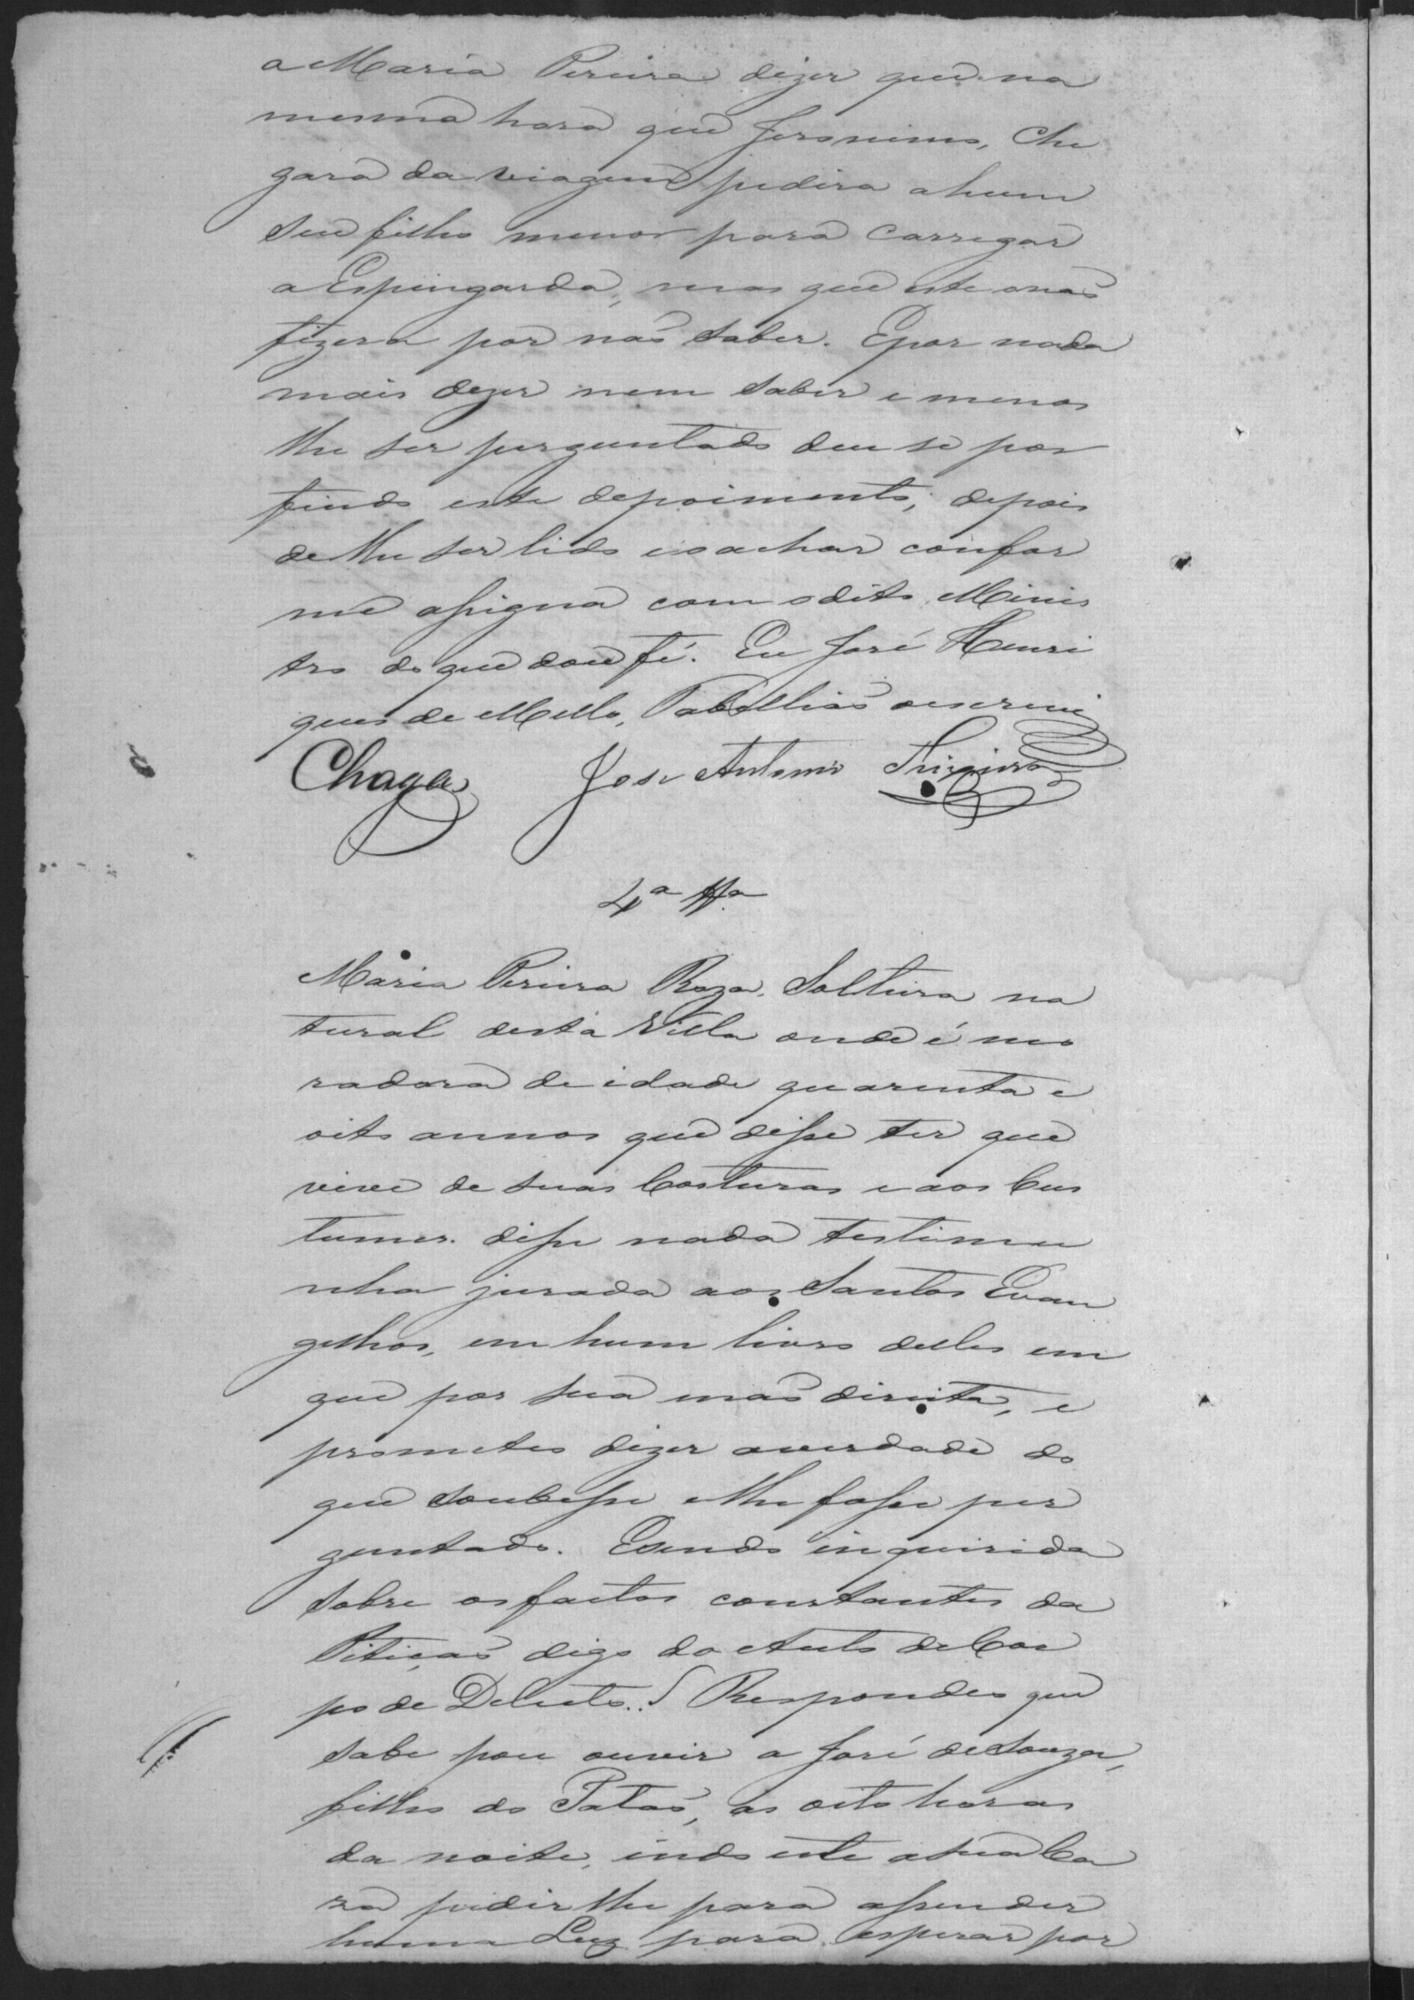 a Maria Pereira dizer que na
mesma hora que Jeronimo, Che
gara da viagem pedira a hum
seu filho menor para carregar
a Espingarda, mas que este não
fizera por não saber. E por nada
mais dizer nem saber e menos
lhe ser perguntado deu se por
findo este depoimento, depois
de lhe ser lido e o achar confor
me assigna com o dito Minis
tro do que dou fé. Eu José Henri
ques de Mello, Tabellião o escrevi
Chagas José Antonio
4ª Tª
Maria Pereira Roza, Solteira na
tural desta Villa onde é mo
radora de idade quarenta e
oito annos que disse ter que
vive de suas Costuras e aos Cus
tumes disse nada testimu
nha jurada aos Santos Evan
gelhos, em hum livro delles em
que pos sua mão direita, e
prometeo dizer a verdade do
que soubesse e lhe fosse per
guntado. E sendo inquirida
sobre os factos constantes da
Pitição digo do Auto de Cor
po de Delicto. Respondeo que
sabe pou ouvir a José de Souza,
filho do Patão, as oito horas
da noite, indo este a sua Ca
za pedir lhe para assender
huma Luz para esperar por